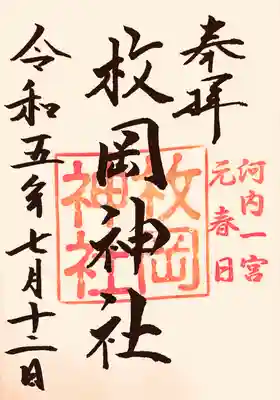 奉拝
河内一宮
元春日
枚岡神社
枚岡
神社
令和五年七月十二日